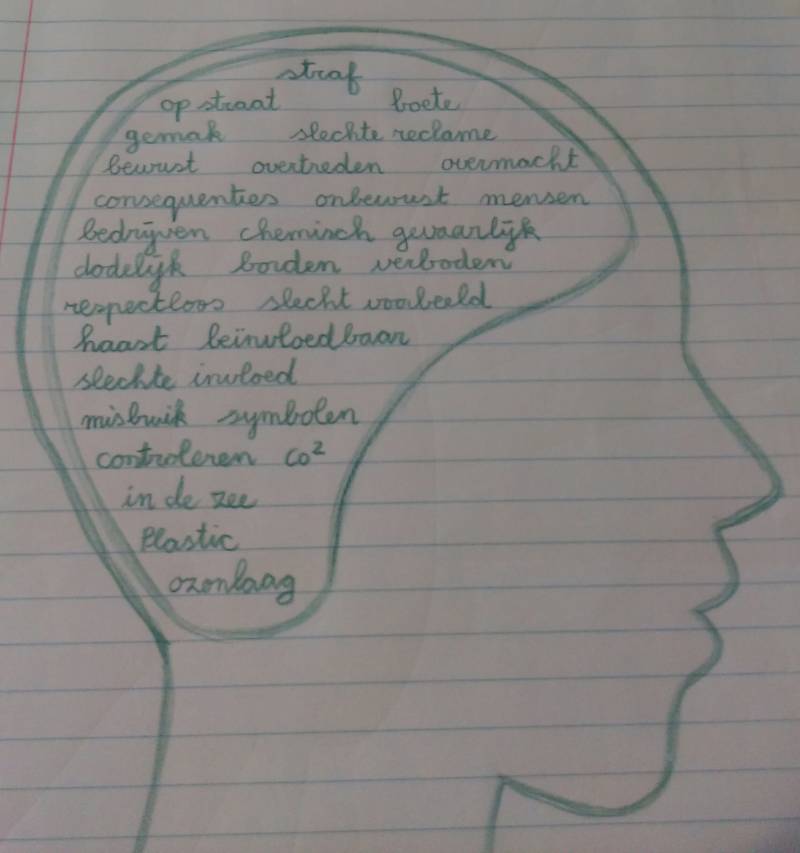 straf
op straat boete
gemak slechte reclame
bewust overtreden overmacht
consequenties onbewust mensen
bedrijven chemisch gevaarlijk
dodelijk borden verboden
respectloos slecht voorbeeld
haast beïnvloedbaar
slechte invloed
misbruik symbolen
controleren CO²
in de zee
Plastic
ozonlaag